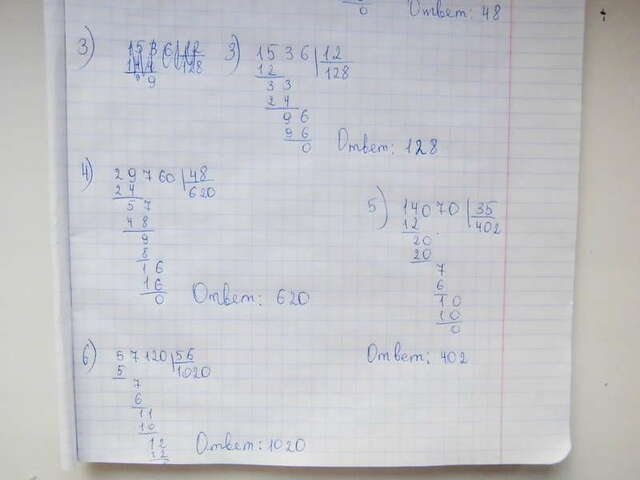 0
Ответ: 48
3)
3) 1536 12
12 128
33
24
96
96
0
Ответ: 128
4) 29760 48
24 620
57
48
9
8
16
16
0
Ответ: 620
5) 14070 35
12 402
20
20
7
6
10
10
0
Ответ: 402
6) 57120 56
5 1020
7
6
11
10
12
12
Ответ: 1020